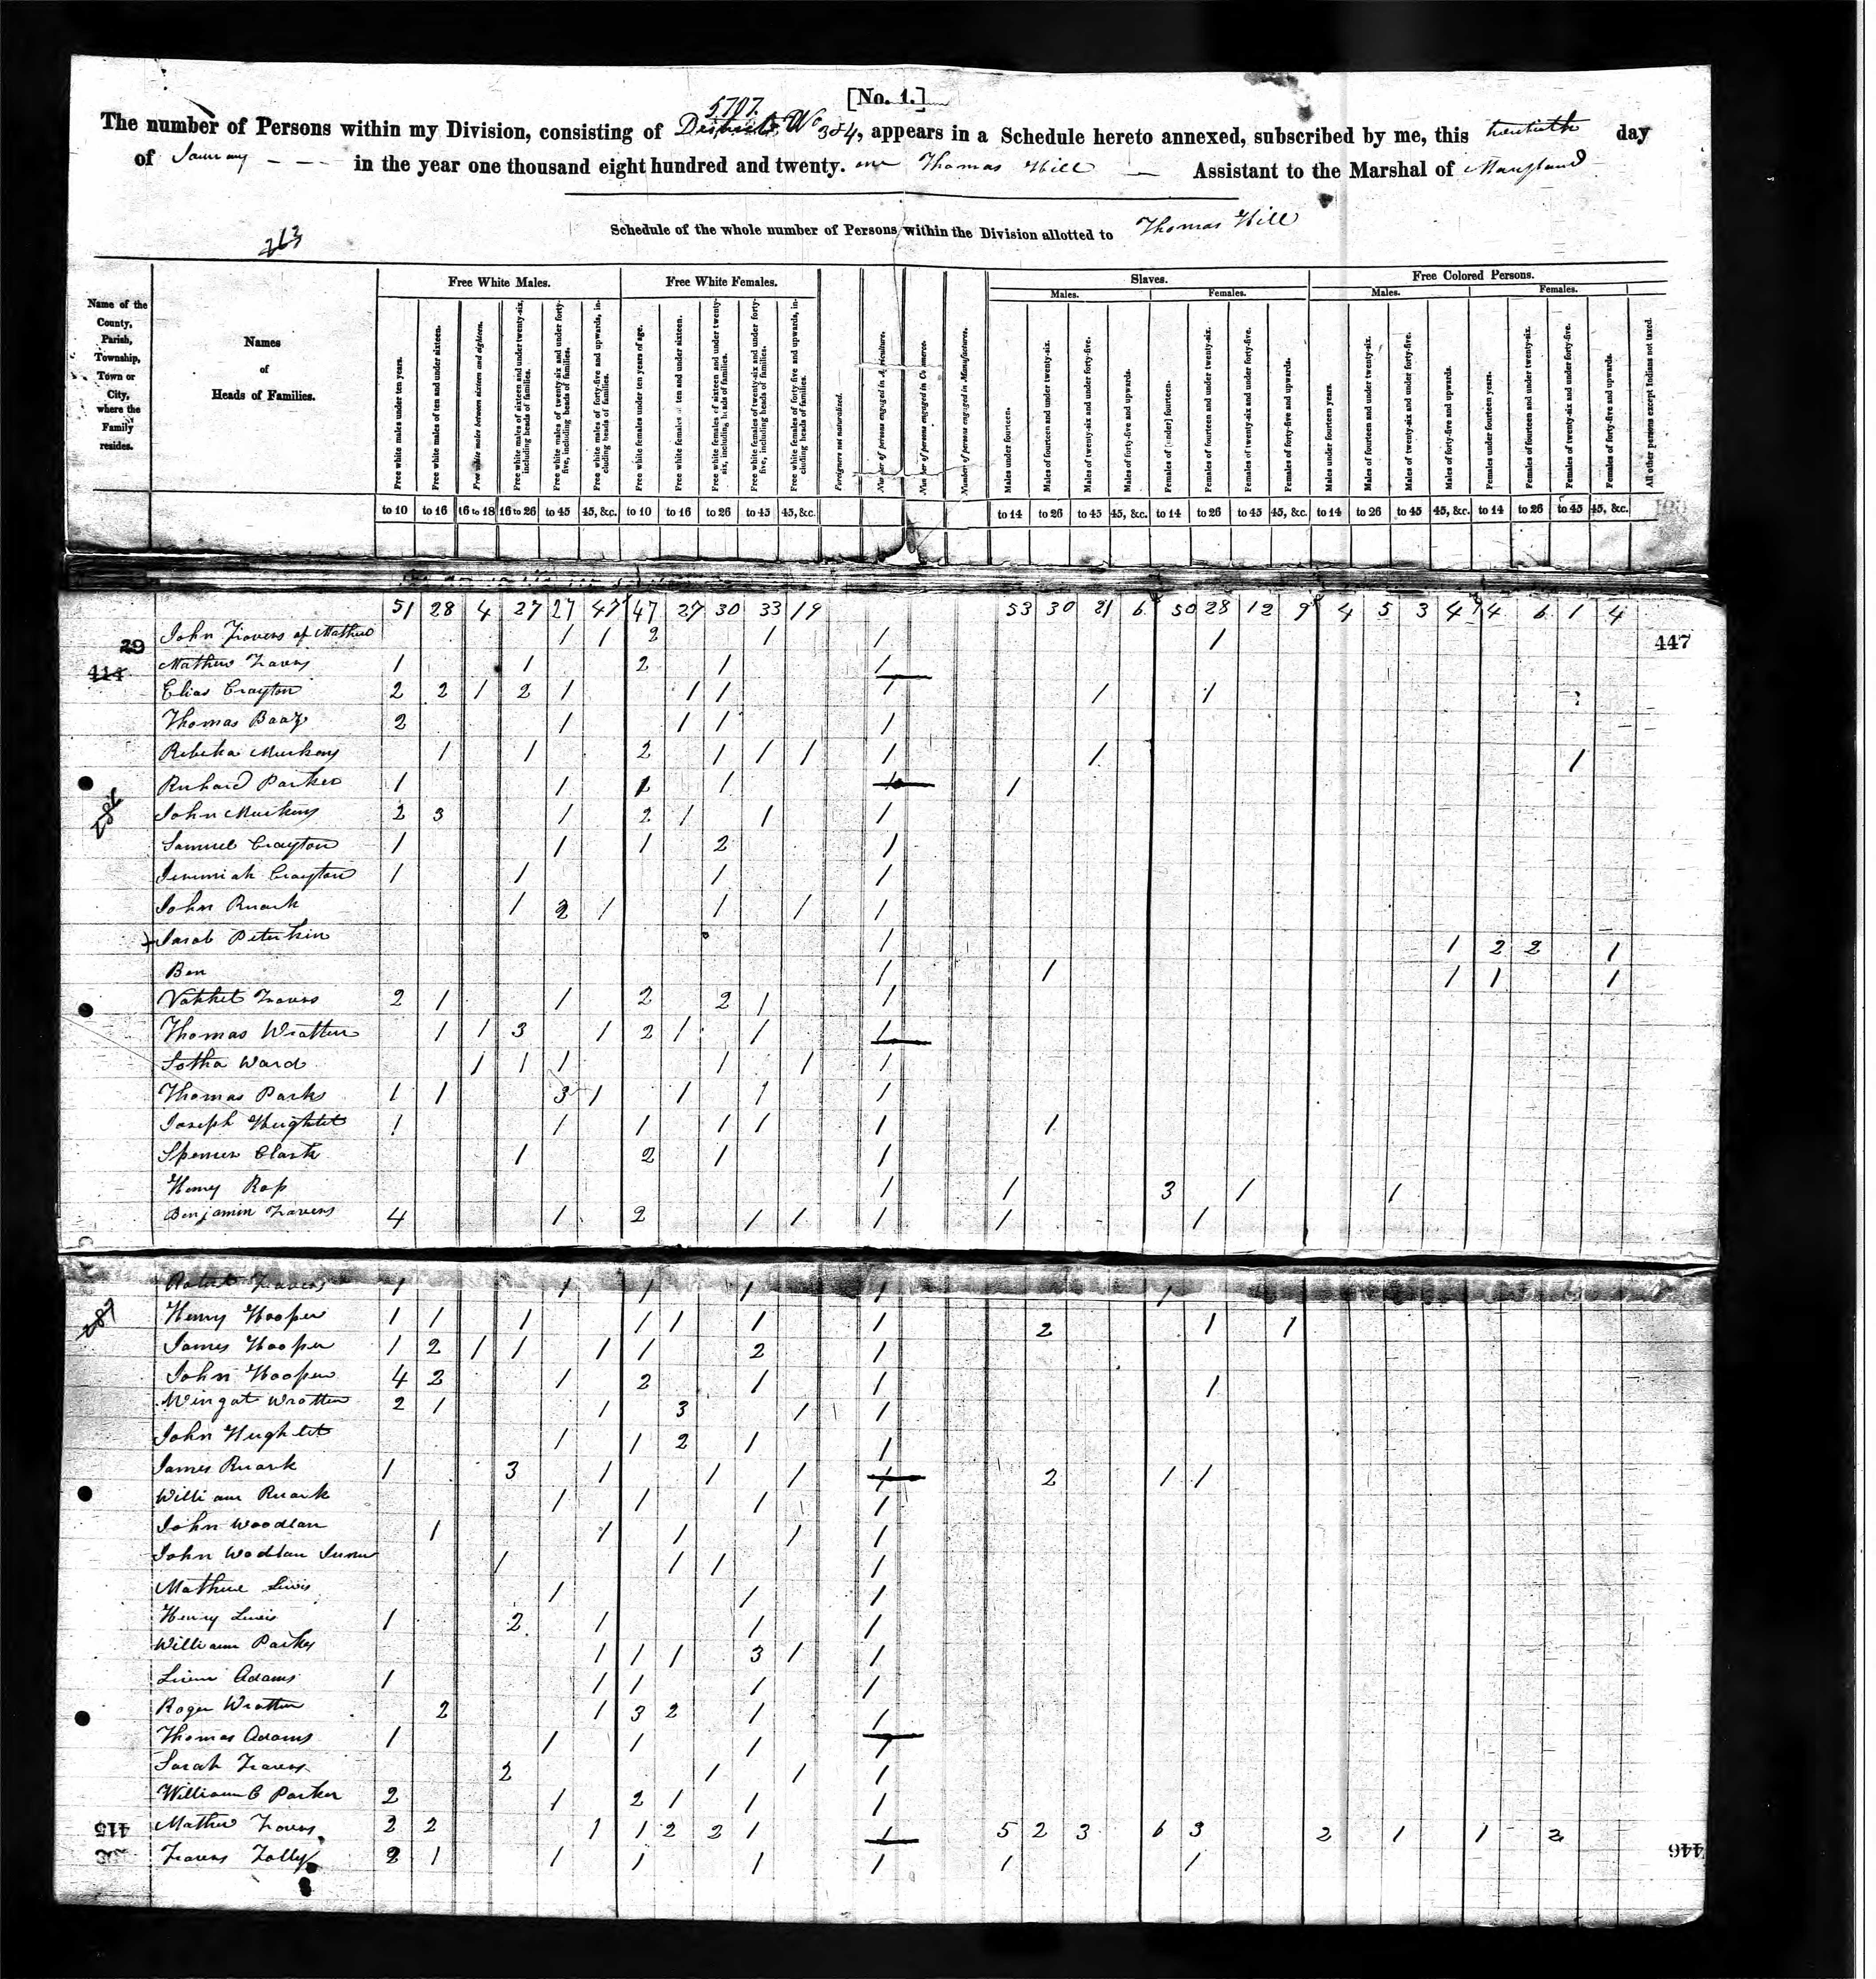 [No. 1.]
5707
The number of Persons within my Division, consisting of Districts No 3 & 4, appears in a Schedule hereto annexed, subscribed by me, this twentieth day
of January - - - in the year one thousand eight hundred and twenty. one Thomas Hill — Assistant to the Marshal of Maryland
Schedule of the whole number of Persons within the Division allotted to Thomas Hill
263
Name of the County, Parish, Township, Town or City, where the Family resides.
Names of Heads of Families.
Free White Males.
Free white males under ten years.
Free white males of ten and under sixteen.
Free white males between sixteen and eighteen.
Free white males of sixteen and under twenty-six, including heads of families.
Free white males of twenty-six and under forty-five, including heads of families.
Free white males of forty-five and upwards, including heads of families.
Free White Females.
Free white females under ten years of age.
Free white females of ten and under sixteen.
Free white females of sixteen and under twenty-six, including heads of families.
Free white females of twenty-six and under forty-five, including heads of families.
Free white females of forty-five and upwards, including heads of families.
Foreigners not naturalized.
Number of persons engaged in Agriculture.
Number of persons engaged in Commerce.
Number of persons engaged in Manufactures.
Slaves.
Males.
Males under fourteen.
Males of fourteen and under twenty-six.
Males of twenty-six and under forty-five.
Males of forty-five and upwards.
Females.
Females of [under] fourteen.
Females of fourteen and under twenty-six.
Females of twenty-six and under forty-five.
Females of forty-five and upwards.
Free Colored Persons.
Males.
Males under fourteen years.
Males of fourteen and under twenty-six.
Males of twenty-six and under forty-five.
Males of forty-five and upwards.
Females.
Females under fourteen years.
Females of fourteen and under twenty-six.
Females of twenty-six and under forty-five.
Females of forty-five and upwards.
All other persons except Indians not taxed.
to 10 to 16 16 to 18 16 to 26 to 45 45, &c. to 10 to 16 to 26 to 45 45, &c. to 14 to 26 to 45 45, &c. to 14 to 26 to 45 45, &c. to 14 to 26 to 45 45, &c. to 14 to 26 to 45 45, &c.
51 28 4 27 27 47 47 27 30 33 19 53 30 21 6 50 28 12 9 4 5 3 4 4 6 1 4
29 John Travers of Mathew 1 1 2 1 1 1 447
414 Mathew Travers 1 1 2 1 1
Elias Crayton 2 2 1 2 1 1 1 1 1 1
Thomas 2 1 1 1 1
Rebeka 1 1 2 1 1 1 1 1 1
Richard Parker 1 1 1 1 1 1
286 John 2 3 1 2 1 1 1
Samuel Crayton 1 1 1 2 1
Jeremiah Crayton 1 1 1 1
John Ruark 1 2 1 1 1 1
Jacob Peterkin 1 1 2 2 1
Ben 1 1 1 1 1
Travers 2 1 1 2 2 1 1
Thomas Wratten 1 1 3 1 2 1 1 1
Ward 1 1 1 1 1 1
Thomas Parks 1 1 3 1 1 1 1
Joseph Hughlet 1 1 1 1 1 1 1
Spencer Clark 1 2 1 1
Henry Ross 1 1 3 1 1
Benjamin Travers 4 1 2 1 1 1 1 1
Robert Travers 1 1 1 1 1 1
287 Henry Hooper 1 1 1 1 1 1 1 2 1 1
James Hooper 1 2 1 1 1 1 2 1
John Hooper 4 2 1 2 1 1 1
Wingat Wrotten 2 1 1 3 1 1
John Hughlet 1 1 2 1 1
James Ruark 1 3 1 1 1 1 2 1 1
William Ruark 1 1 1 1
John Woodlan 1 1 1 1 1
John Wodlan Junr 1 1 1 1
Mathew Lewis 1 1 1
Henry Lewis 1 2 1 1 1
William Parks 1 1 1 3 1 1
Adams 1 1 1 1 1
Roger Wratten 2 1 3 2 1 1
Thomas Adams 1 1 1 1 1
Sarah Travers 2 1 1 1
William B Parker 2 1 2 1 1 1
415 Mathew Travers 2 2 1 1 2 2 1 1 5 2 3 6 3 2 1 1 2
Travers Tolly 2 1 1 1 1 1 1 1 446